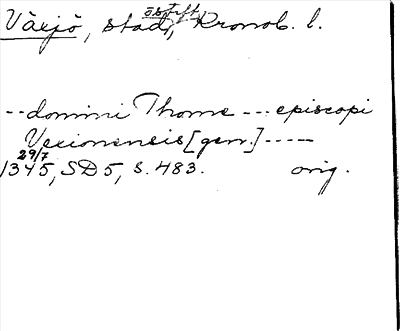 Växjö, stad, o. stift, Kronob. l.
-- domini Thome --- episcopi
Vexionensis [gen.] -----
29/7
1345, SD 5, s. 483. orig.